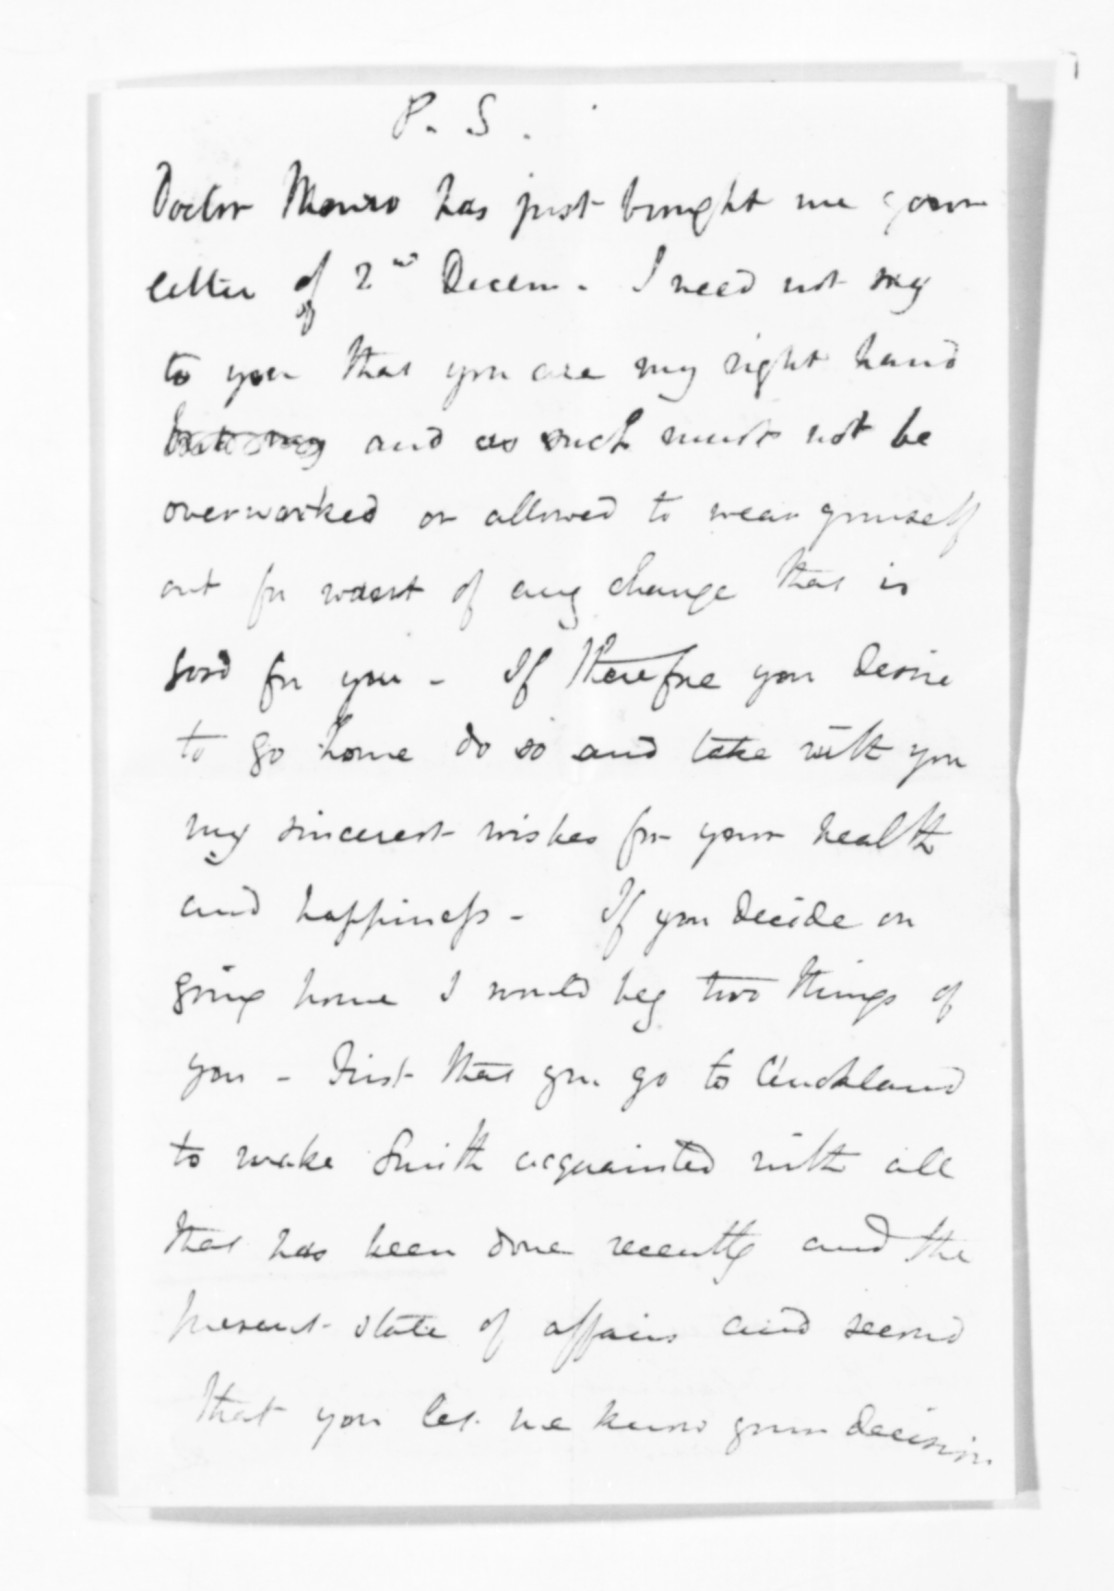 P. S.
Doctor Monro has just brought me your
letter of 2nd Decem. I need not say
to you that you are my right hand
and as such must not be
overworked or allowed to wear yourself
out for want of any change that is
good for you - If therefore you desire
to go home do so and take with you
my sincerest wishes for your health
and happiness - If you decide on
going home I would beg two things of
you - First that you go to Auckland
to make Smith acquainted with all
that has been done recently and the
present state of affairs and second
that you let me know your decision